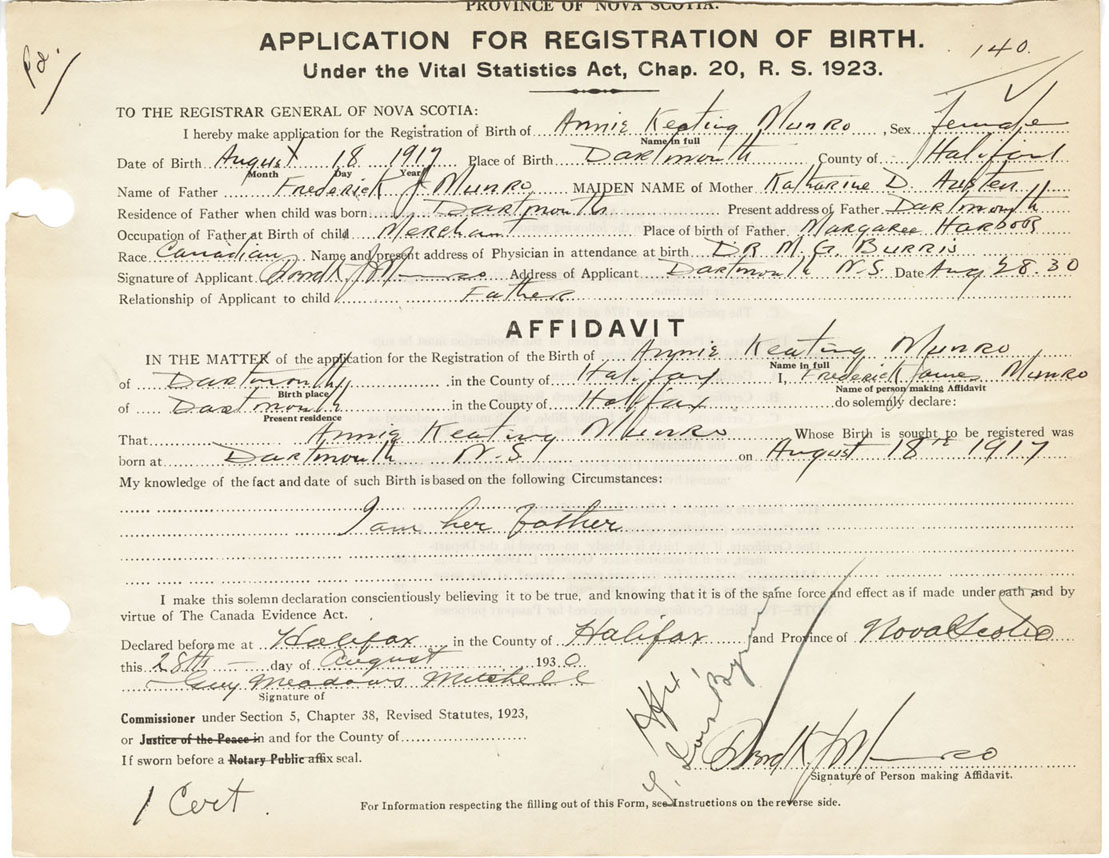 PROVINCE OF NOVA SCOTIA.
APPLICATION FOR REGISTRATION OF BIRTH.
140.
Under the Vital Statistics Act, Chap. 20, R. S. 1923.
Pd.
TO THE REGISTRAR GENERAL OF NOVA SCOTIA:
I hereby make application for the Registration of Birth of Annie Keating Munro, Sex Female
Name in full
Date of Birth August 18 1917 Place of Birth Dartmouth County of Halifax
Month Day Year
Name of Father Frederick J Munro MAIDEN NAME of Mother Katharine D. Austen
Residence of Father when child was born Dartmouth Present address of Father Dartmouth
Occupation of Father at Birth of child Merchant Place of birth of Father Margaree Harbour
Race Canadian Name and present address of Physician in attendance at birth DR M. G. BURRIS
Signature of Applicant Fredk J Munro Address of Applicant Dartmouth N.S. Date Aug 28. 30
Relationship of Applicant to child Father
AFFIDAVIT
IN THE MATTER of the application for the Registration of the Birth of Annie Keating Munro
Name in full
of Dartmouth in the County of Halifax I, Frederick James Munro
Birth place Name of person making Affidavit
of Dartmouth in the County of Halifax do solemnly declare:
Present residence
That Annie Keating Munro Whose Birth is sought to be registered was
born at Dartmouth N.S. on August 18th 1917
My knowledge of the fact and date of such Birth is based on the following Circumstances:
I am her father
I make this solemn declaration conscientiously believing it to be true, and knowing that it is of the same force and effect as if made under oath and by
virtue of The Canada Evidence Act.
Declared before me at Halifax in the County of Halifax and Province of Nova Scotia
this 28th day of August 1930
Guy Meadows Mitchell
Signature of
Commissioner under Section 5, Chapter 38, Revised Statutes, 1923,
or Justice of the Peace in and for the County of
If sworn before a Notary Public affix seal.
Hfx
Fredk J Munro
Signature of Person making Affidavit.
1 Cert.
For Information respecting the filling out of this Form, see Instructions on the reverse side.